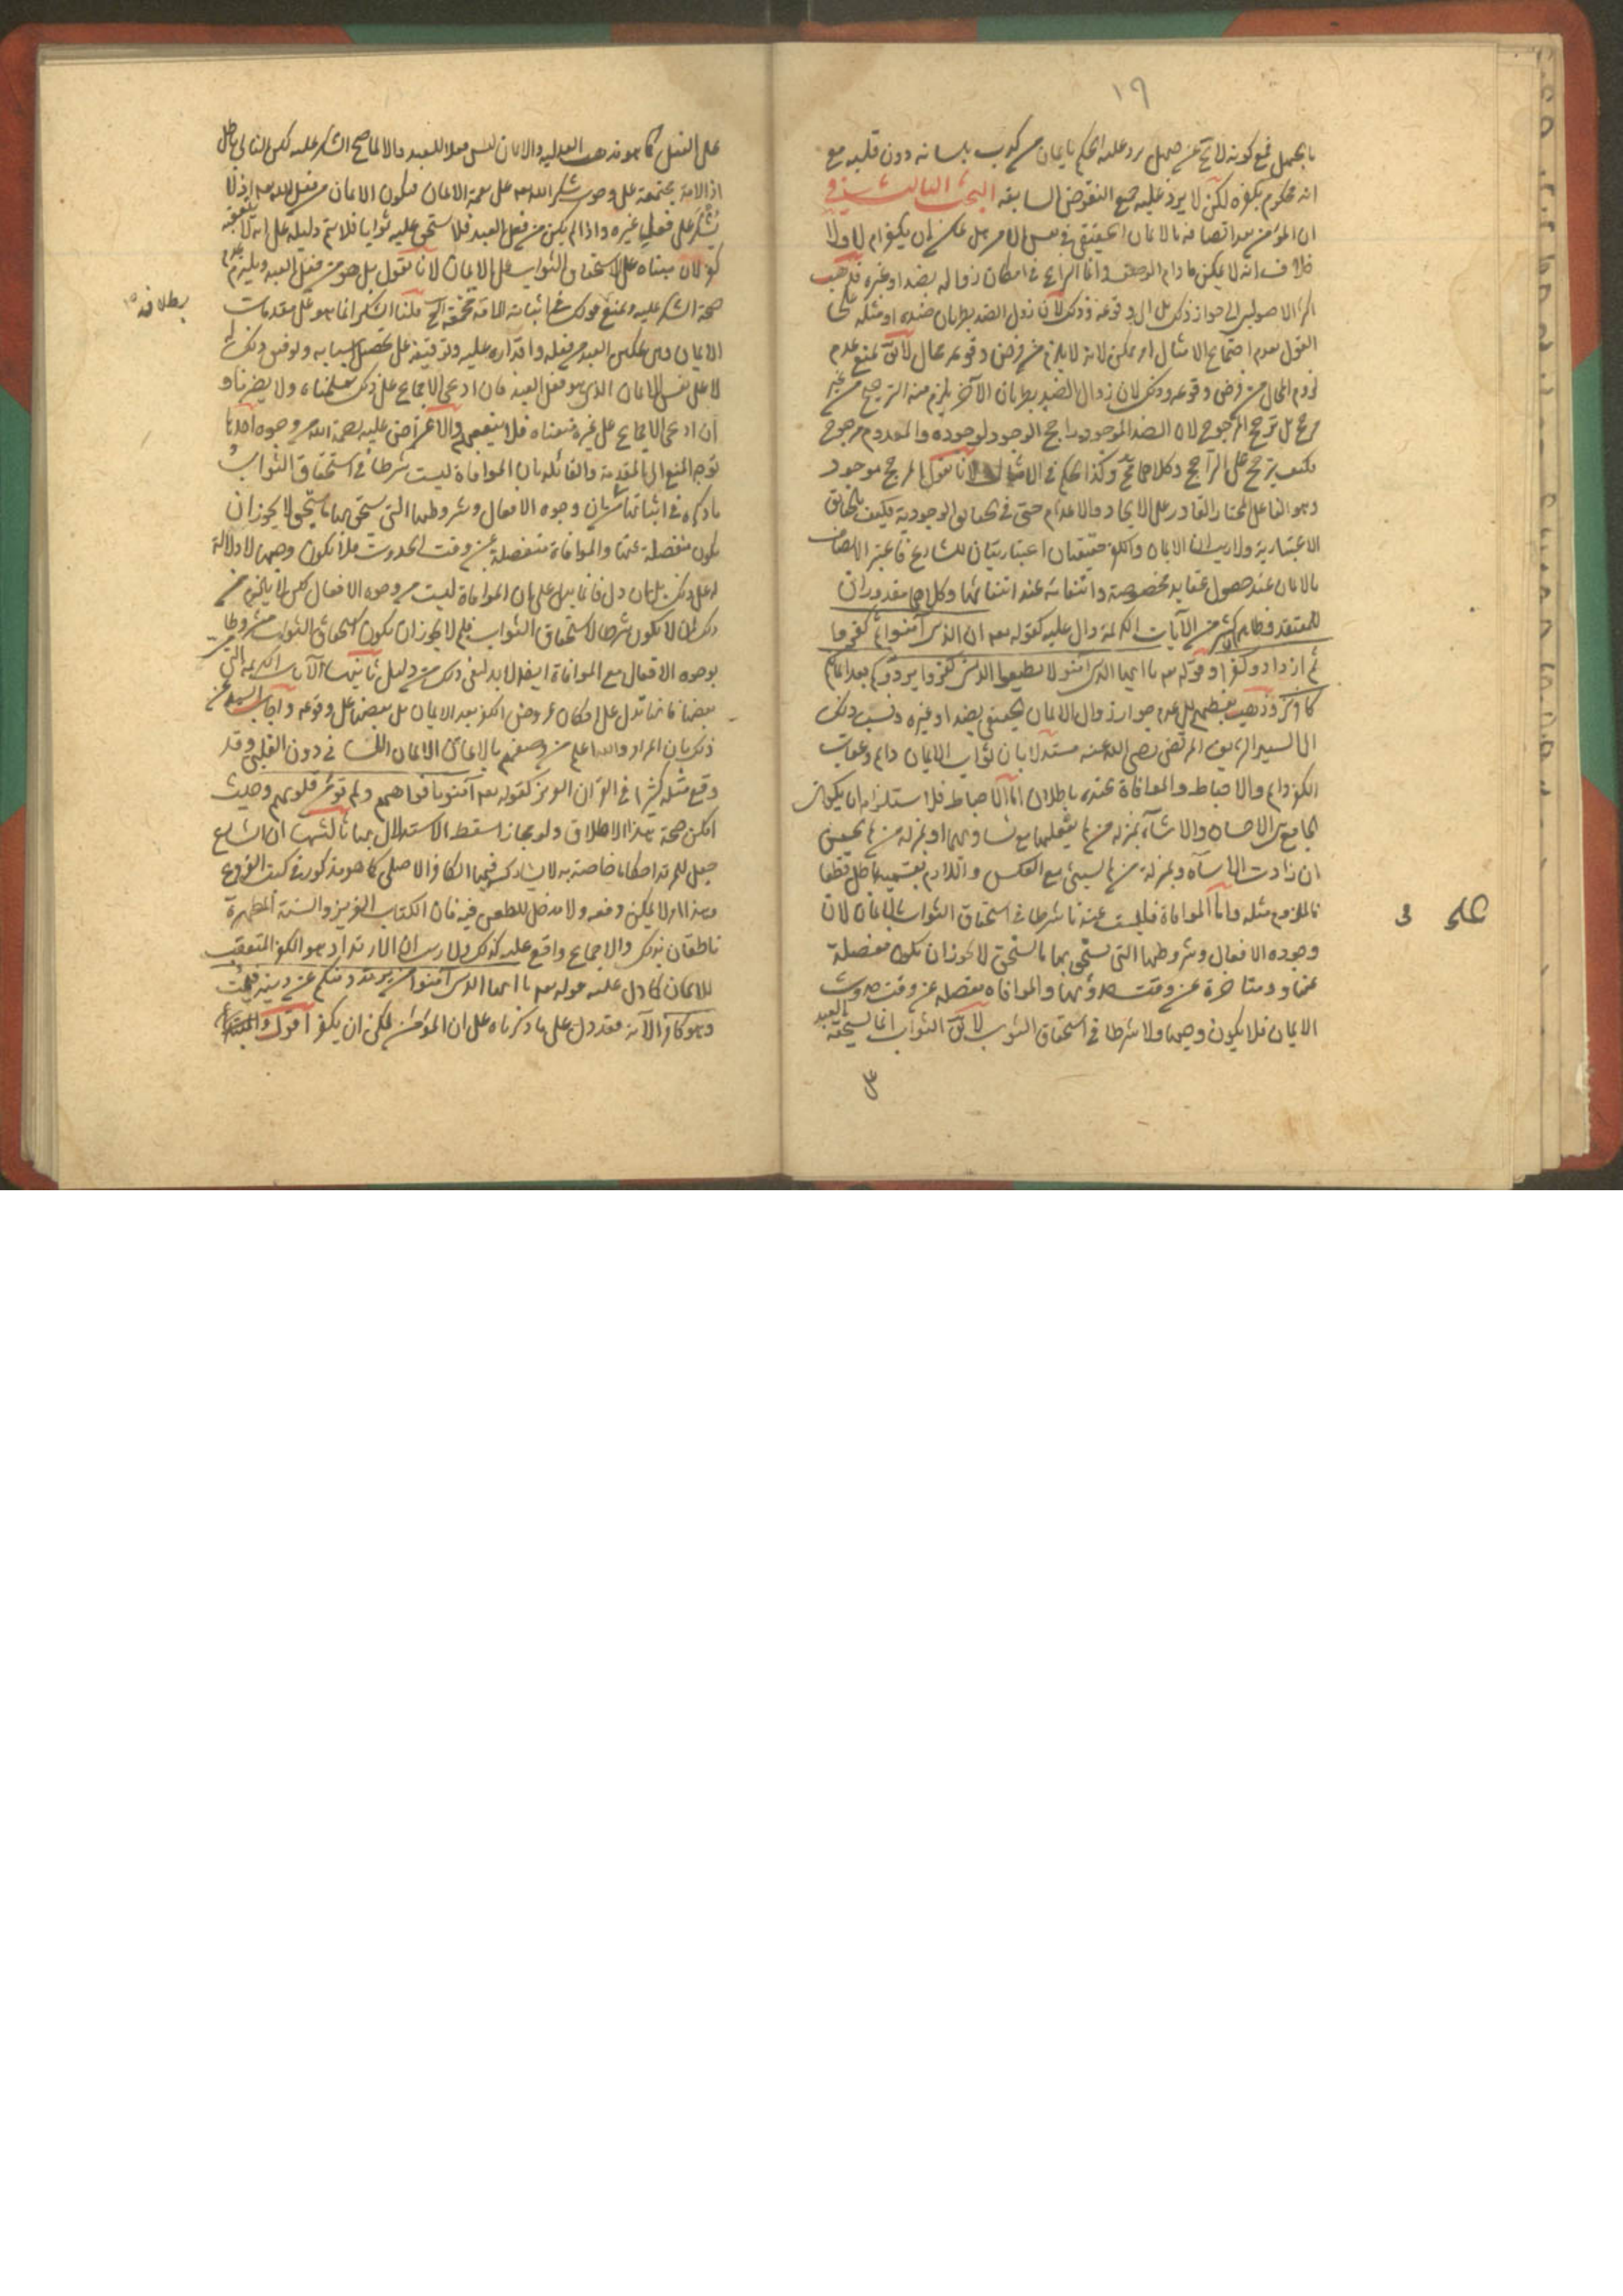 ١٩
بالجهل فمع كونه لا يخ عن جهل يرد عليه الحكم بايمان من كذب بلسانه دون قلبه مع
انه محكوم بكفره لكن لا يرد عليه جميع النقوض السابقه البحث الثالث في
ان المؤمن بعد اتصافه بالايمان الحقيقي في نفس الامر هل يمكن ان يكفر ام لا ولا
خلاف انه لا يمكن ما دام الوصف وانما النزاع في امكان زواله بضد او غيره فذهب
اكثر الاصوليين الى جواز ذلك بل الى وقوعه وذلك لان زوال الضد بطريان ضده او مثله على
القول بعدم اجتماع الامثال امر ممكن لانه لا يلزم من فرض وقوعه محال لا يق نمنع عدم
لزوم المحال من فرض وقوعه وذلك لان زوال الضد بطريان الآخر يلزم منه الترجيح من غير
مرجح بل ترجيح المرجوح لان الضد الموجود راجح الوجود لوجوده والمعدوم مرجوح
فكيف يترجح على الراجح وكلاهما مح وكذا الحكم في الامثال لانا نقول المرجح موجود
وهو الفاعل المختار القادر على الايجاد والاعدام حتى في الحقايق الوجودية فكيف بالحقايق
الاعتبارية ولا ريب ان الايمان والكفر حقيقتان اعتباريتان للشارع فاعتبر الاتصاف
بالايمان عند حصول عقايد مخصوصة وانتفائه عند انتفائها وكلاهما مقدوران
للمعتقد وظاهر كثير من الآيات الكريمة دال عليه كقوله تعه ان الذين آمنوا ثم كفروا
ثم ازدادوا كفرا وقوله تعه يا ايها الذين آمنوا ان تطيعوا الذين كفروا يردوكم بعد ايمانكم
كافرين وذهب بعضهم الى عدم جواز زوال الايمان الحقيقي بضد او غيره ونسب ذلك
الى السيد الشريف المرتضى رضى الله عنه مستدلا بان ثواب الايمان دايم وعقاب
الكفر دايم والاحباط والموافاة عنده باطلان اما الاحباط فلاستلزامه ان يكون
الجامع بين الاحسان والاساءة بمنزلة من لم يفعلهما مع تساويهما او بمنزلة من لم يحسن
ان زادت الاساءة وبمنزلة من لم يسئ مع العكس واللازم بقسميه باطل قطعا
فالملزوم مثله واما الموافاة فليست عندنا شرطا في استحقاق الثواب بالايمان لان
وجوه الافعال وشروطها التي يستحق بها ما يستحق لا يجوز ان يكون منفصلة
عنها ومتاخرة عن وقت حدوثها والموافاة منفصلة عن وقت حدوث
الايمان فلا يكون وجها ولا شرطا في استحقاق الثواب لا يق الثواب انما يستحقه العبد
على
على الفعل كما هو مذهب العدلية والايمان ليس فعلا للعبد والا لما صح الشكر عليه لكن التالي باطل
اذ الامة مجتمعة على وجوب شكر الله تعه على نعمة الايمان فيكون الايمان من فعل الله تعه اذ لا
يشكر على فعل غيره واذا لم يكن من فعل العبد فلا يستحق عليه ثوابا فلا يتم دليله على انه لا يتعقبه
كفر لان مبناه على استحقاق الثواب على الايمان لانا نقول بل هو من فعل العبد ويلتزم عدم
صحة الشكر عليه ونمنع قولك في اثباته الامة مجتمعة الخ قلنا الشكر انما هو على مقدمات
بطلانه
الايمان وهي تمكين العبد من فعله واقداره عليه وتوفيقه على تحصيل اسبابه وتوفيق ذلك له
لا على نفس الايمان الذي هو فعل العبد فان ادعى الاجماع على ذلك سلمناه ولا يضرنا و
ان ادعى الاجماع على غيره منعناه فلا ينفعهم والاعتراض عليه رحمه الله من وجوه احدها
توجه المنع الى المقدمة القائلة بان الموافاة ليست شرطا في استحقاق الثواب و
ما ذكره في اثباتها من ان وجوه الافعال وشروطها التي يستحق بها ما يستحق لا يجوز ان
يكون منفصلة عنها والموافاة منفصلة عن وقت الحدوث فلا تكون وجها لا دلالة
له على ذلك بل ان دل فانما يدل على ان الموافاة ليست من وجوه الافعال لكن لا يلزم من
ذلك ان لا يكون شرطا لاستحقاق الثواب فلم لا يجوز ان يكون استحقاق الثواب مشروطا
بوجوه الافعال مع الموافاة ايضا لا بد لنفي ذلك من دليل ثانيها الآيات الكريمة التي
بعضها فانها تدل على امكان عروض الكفر بعد الايمان بل بعضها على وقوعه واجاب السيد عن
ذلك بان المراد والله اعلم من وصفهم بالايمان الايمان اللساني دون القلبي وقد
وقع مثله كثيرا في القرآن العزيز كقوله تعه آمنوا بافواههم ولم تؤمن قلوبهم وحيث
امكن صحة هذا الاطلاق ولو مجازا سقط الاستدلال بها ثالثها ان الشارع
جعل للمرتد احكاما خاصة به لا يشاركه فيها الكافر الاصلي كما هو مذكور في كتب الفروع
وهذا امر لا يمكن دفعه ولا مدخل للطعن فيه فان الكتاب العزيز والسنة المطهرة
ناطقان بذلك والاجماع واقع عليه كذلك ولا ريب ان الارتداد هو الكفر المتعقب
للايمان كما دل عليه قوله تعه يا ايها الذين آمنوا من يرتدد منكم عن دينه فيمت
وهو كافر الآية فقد دل على ما ذكرناه على ان المؤمن يمكن ان يكفر اقول